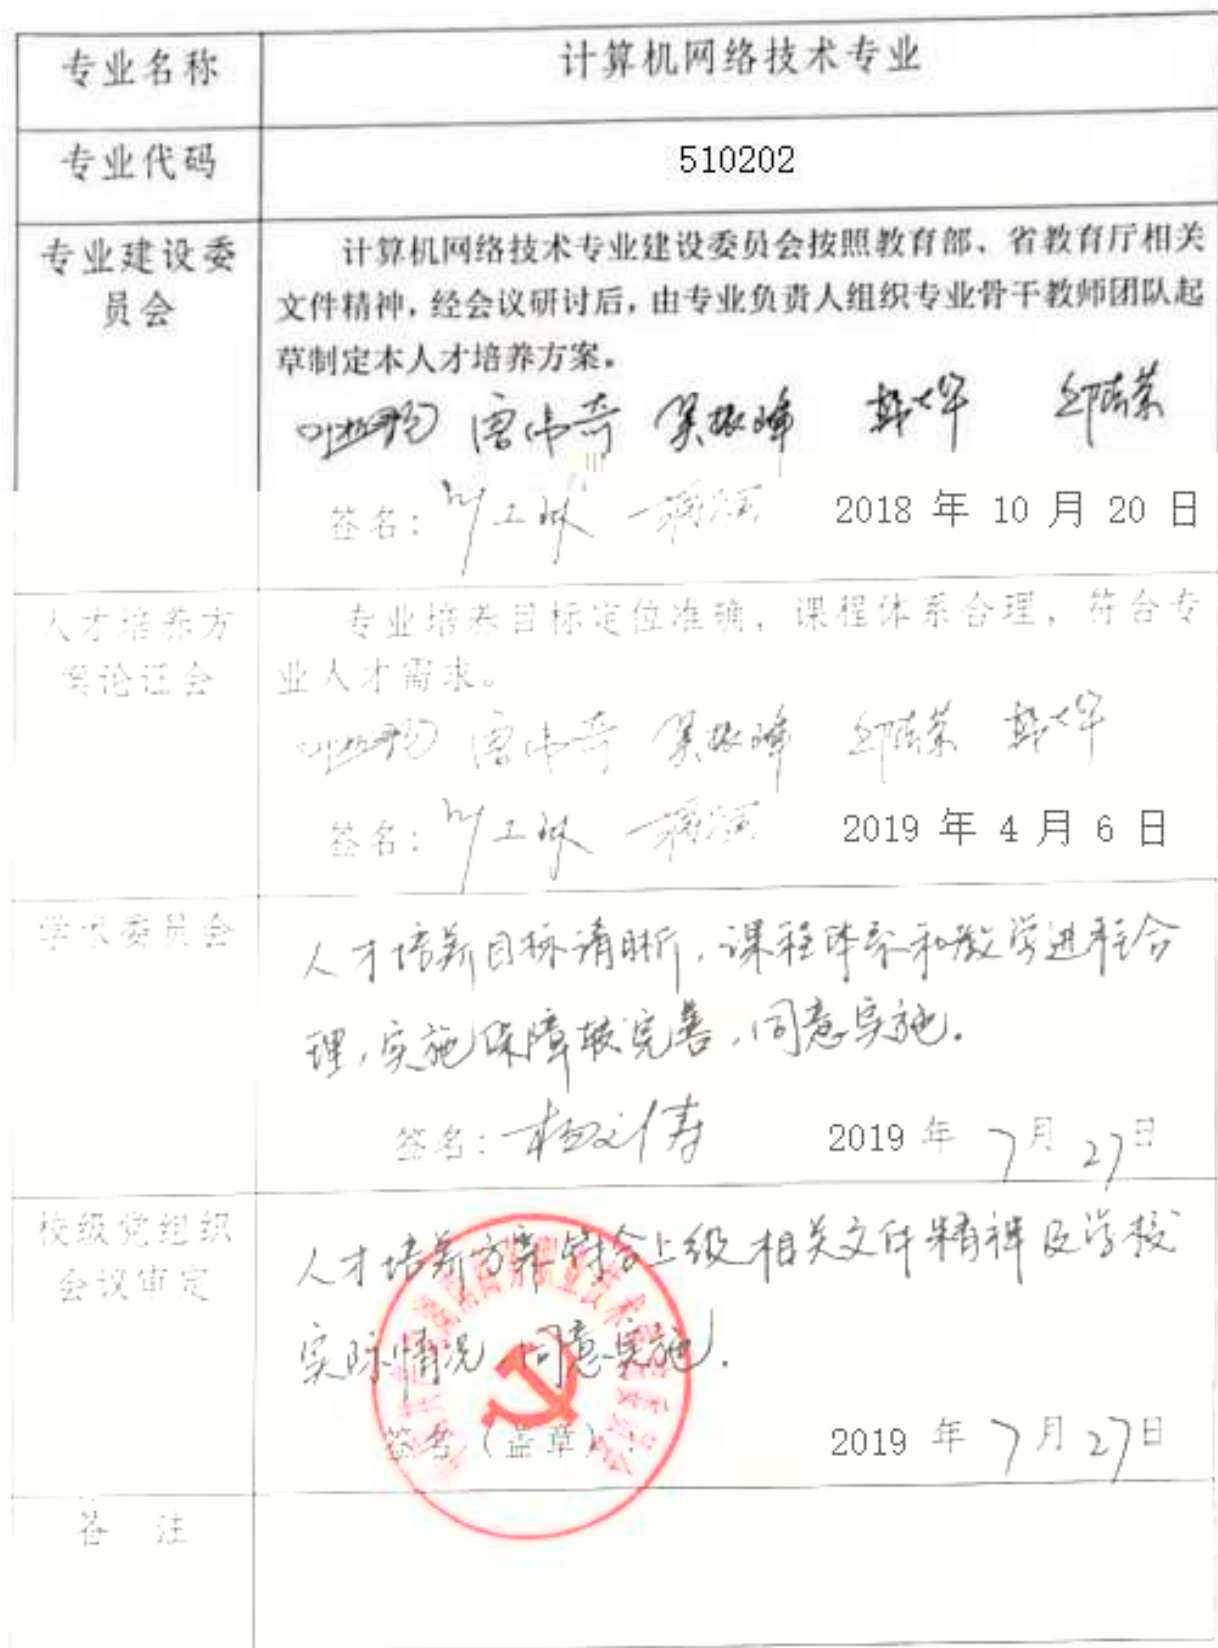 专业名称
计算机网络技术专业
专业代码
510202
专业建设委
员会
计算机网络技术专业建设委员会按照教育部、省教育厅相关
文件精神，经会议研讨后，由专业负责人组织专业骨干教师团队起
草制定本人才培养方案。
吴振峰
签名：
2018 年 10 月 20 日
人才培养方
案论证会
专业培养目标定位准确，课程体系合理，符合专
业人才需求。
吴振峰
签名：
2019 年 4 月 6 日
学术委员会
人才培养目标清晰，课程体系和教学进程合
理，实施保障较完善，同意实施。
签名：
2019 年 7 月 27 日
校级党组织
会议审定
人才培养方案符合上级相关文件精神及学校
实际情况，同意实施.
签名（盖章）：
2019 年 7 月 27 日
备 注